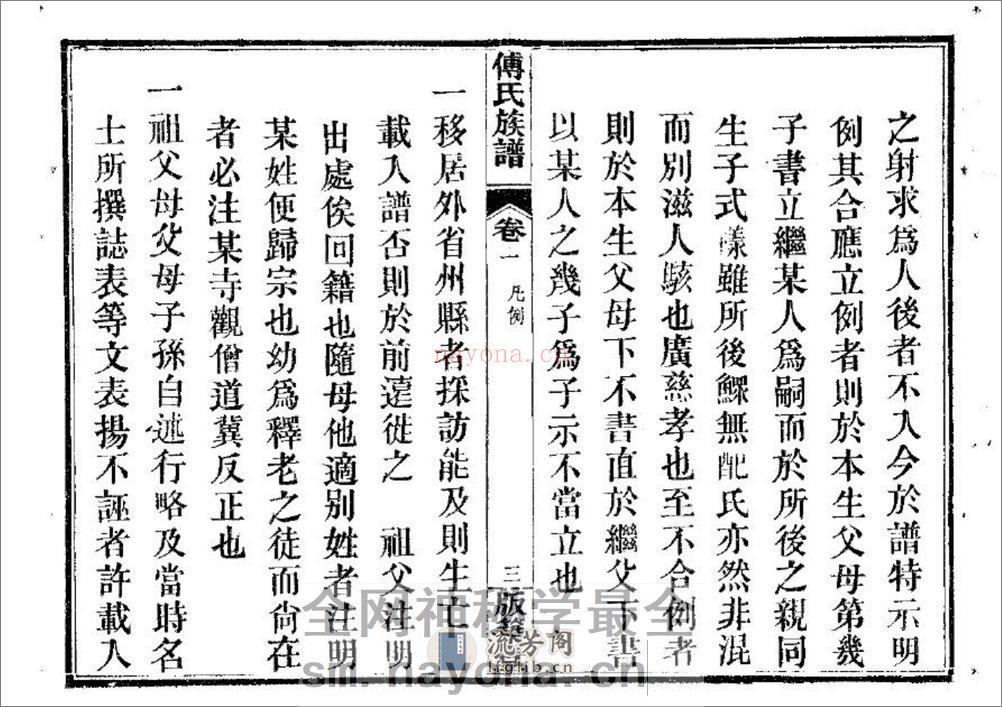 之射求爲人後者不入今於譜特示明
例其合應立例者則於本生父母第幾
子書立繼某人爲嗣而於所後之親同
生子式㨾雖所後鰥無配氏亦然非混
而別滋人駭也廣慈孝也至不合例者
則於本生父母下不書直於繼父下書
以某人之幾子爲子示不當立也
傅氏族譜
卷一
凡例
三
版築
一移居外省州縣者採訪能及則生亡
載入譜否則於前遠徙之 祖父注明
出處俟回籍也隨母他適別姓者注明
某姓便歸宗也幼爲釋老之徒而尙在
者必注某寺觀僧道冀反正也
一祖父母父母子孫自述行略及當時名
士所撰誌表等文表揚不誣者許載入
nayona.cn
全网神秘学最全
sm.nayona.cn
流芳阁
lfglib.cn